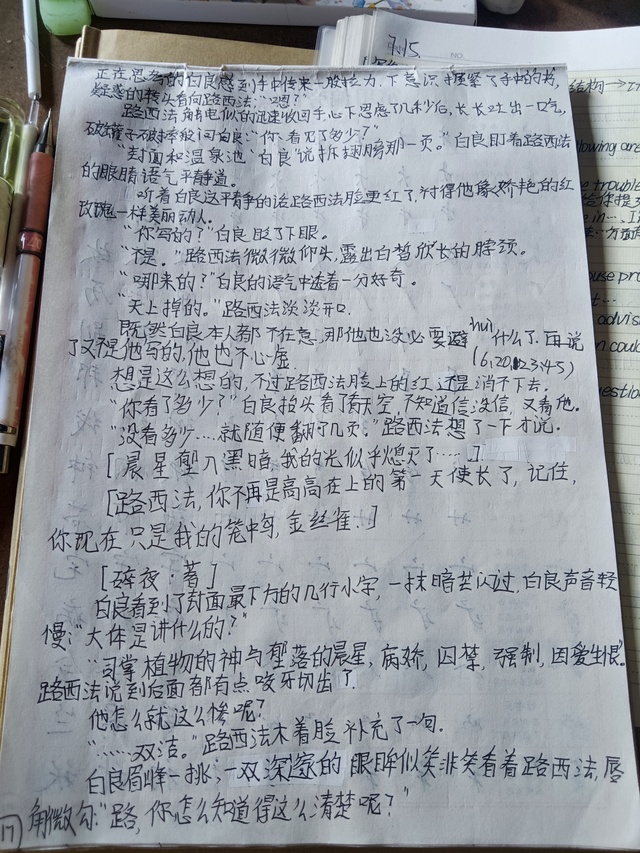 正在思考的白良感到手中传来一股拉力,下意识握紧了手中的书,
疑惑的转头看向路西法:“嗯?”
路西法触电似的迅速收回手心下思虑了几秒后,长长吐出一口气,
破罐子不破摔般问白良:“你看见了多少?”
“封面和温泉池“白良”说拆翅膀那一页。”白良盯着路西法
的眼睛语气平静道。
听着白良这平静的话路西法脸更红了,衬得他像娇艳的红
玫瑰一样美丽动人。
“你写的?”白良眨了下眼。
“不是。”路西法微微仰头,露出白皙欣长的脖颈。
“哪来的?”白良的语气中透着一分好奇。
“天上掉的。”路西法淡淡开口.
既然白良本人都不在意,那他也没必要避hui什么了.再说
了又不是他写的,他也不心虚.
想是这么想的,不过路西法脸上的红还是消不下去.
“你看了多少?”白良抬头看了看天空,不知道信没信,又看他。
“没看多少....就随便翻了几页.”路西法想了一下才说.
[晨星堕入黑暗,我的光似乎熄灭了……]
[路西法,你不再是高高在上的第一天使长了,记住,
你现在只是我的笼中鸟,金丝雀.]
[碎夜·著]
白良看到了封面最下方的几行小字,一抹暗芒闪过,白良声音轻
慢:“大体是讲什么的?”
“司掌植物的神与堕落的晨星,病娇,囚禁,强制,因爱生恨”
路西法说到后面都有点咬牙切齿了.
他怎么就这么惨呢?
“……双洁。”路西法木着脸补充了一句.
白良眉峰一挑,一双深邃的眼眸似笑非笑看着路西法,唇
角微勾:“路,你怎么知道得这么清楚呢?”
17
7.15.
NO
结构→
lowing are
trouble
in...
use pro
advis
could
uestion